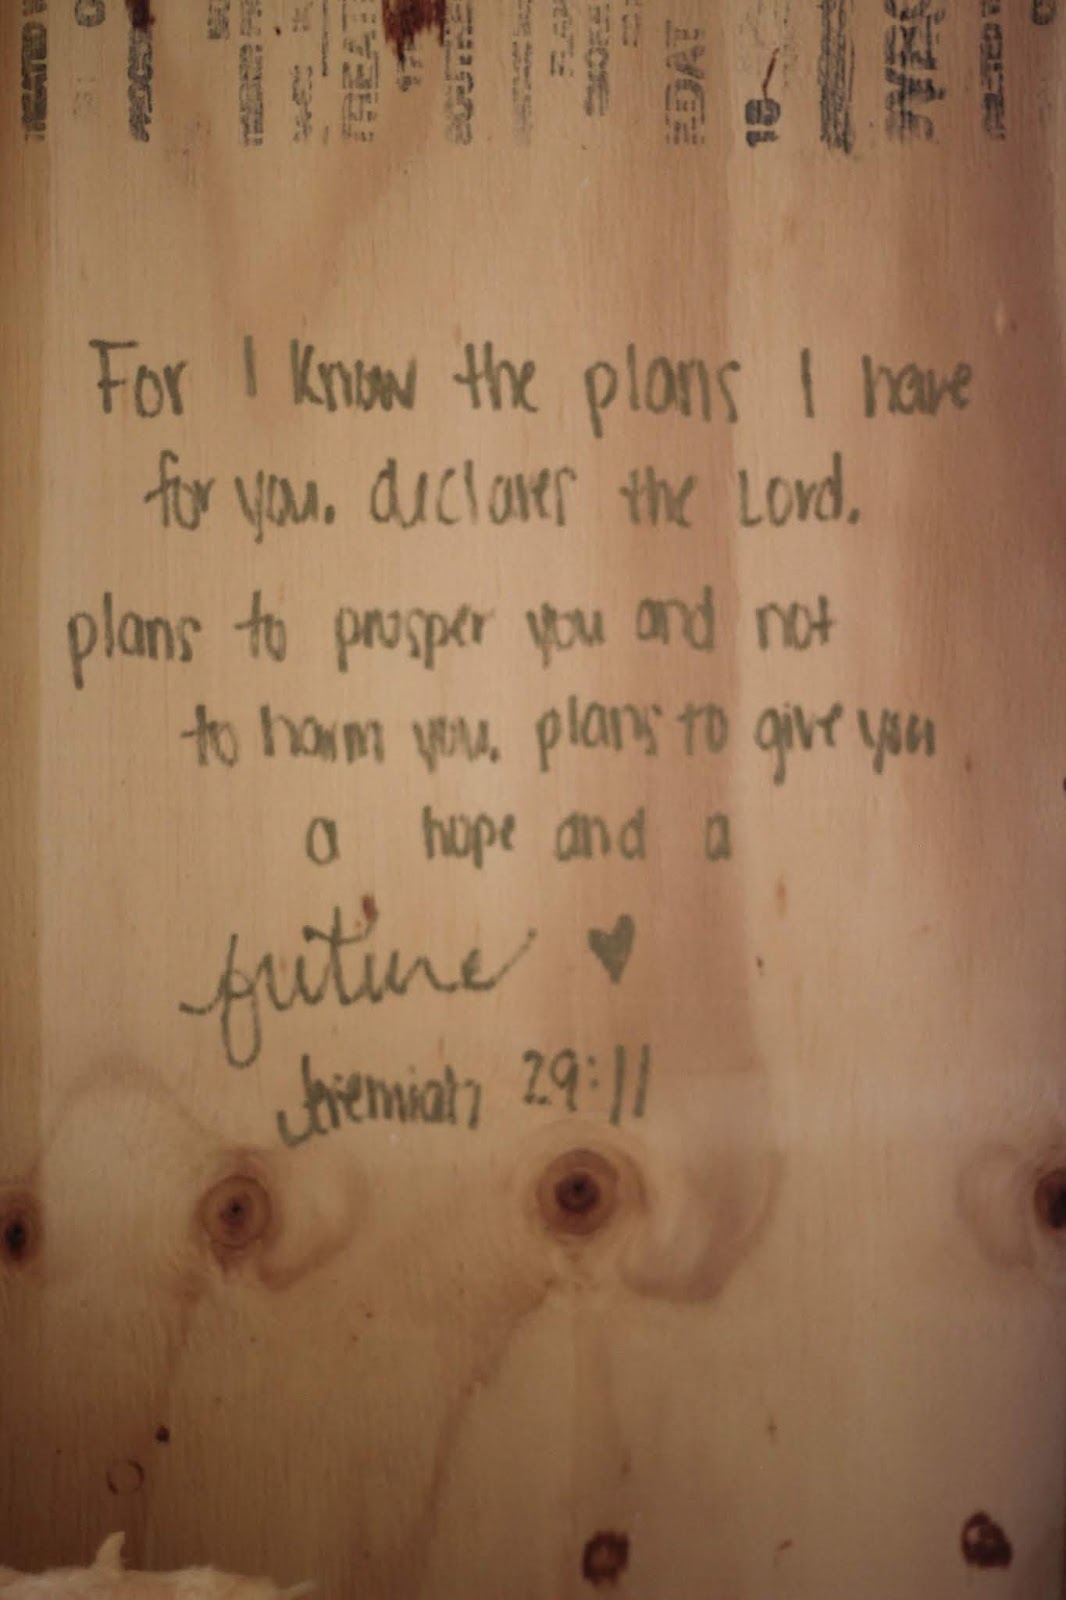 For I know the plans I have
for you. declares the Lord.
plans to prosper you and not
to harm you. plans to give you
a hope and a
future ♥
Jeremiah 29:11